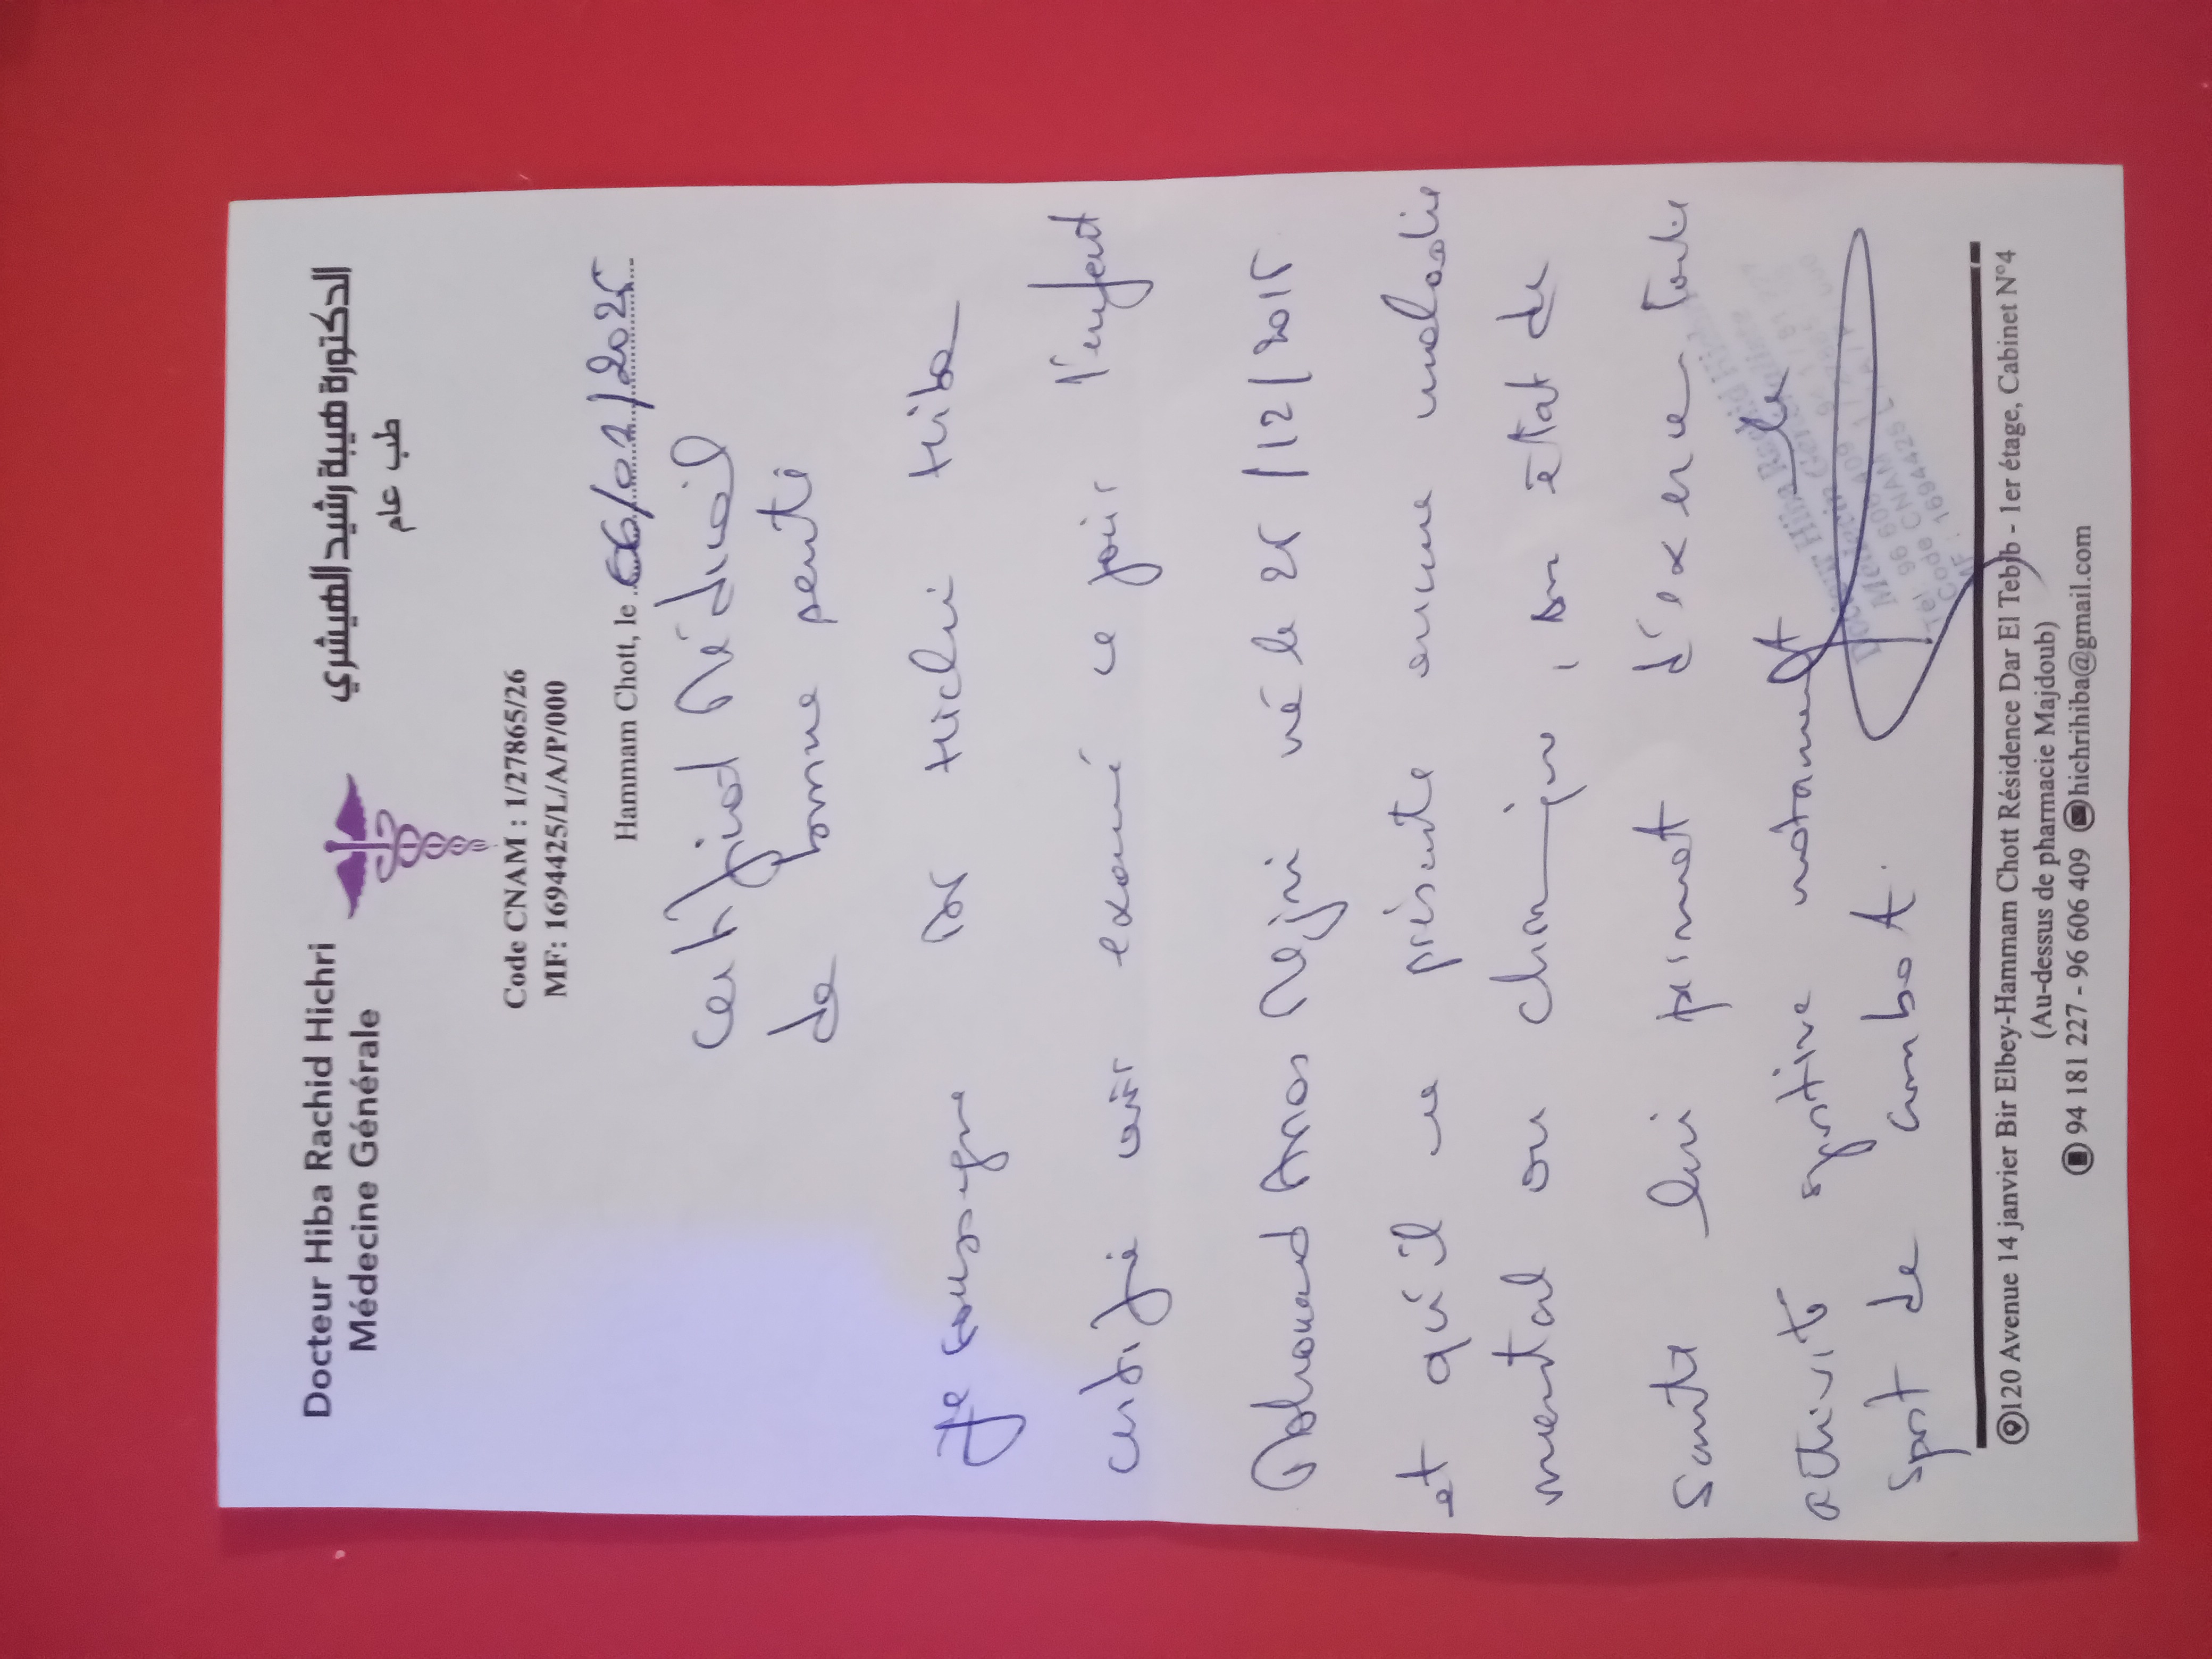 Docteur Hiba Rachid Hichri
Médecine Générale
الدكتورة هيبة رشيد الهيشري
طب عام
Code CNAM : 1/27865/26
MF: 1694425/L/A/P/000
Hammam Chott, le 06/01/2025
Certificat Médical
de bonne santé
Je soussigne Dr Hichri Hiba
certifie avoir examiné ce jour l'enfant
Mohamed Anas Nejri né le 25/12/2015
et qu'il ne présente aucune maladie
mental ou chronique, son état de
santé lui permet d'exercer toute
activité sportive notamment le
sport de combat.
Docteur Hiba Rachid
Tel: 96 606 409
Code CNAM
MF: 1694425 L
120 Avenue 14 janvier Bir Elbey-Hammam Chott Résidence Dar El Tebib - 1er étage, Cabinet N°4
(Au-dessus de pharmacie Majdoub)
94 181 227 - 96 606 409 hichrihiba@gmail.com